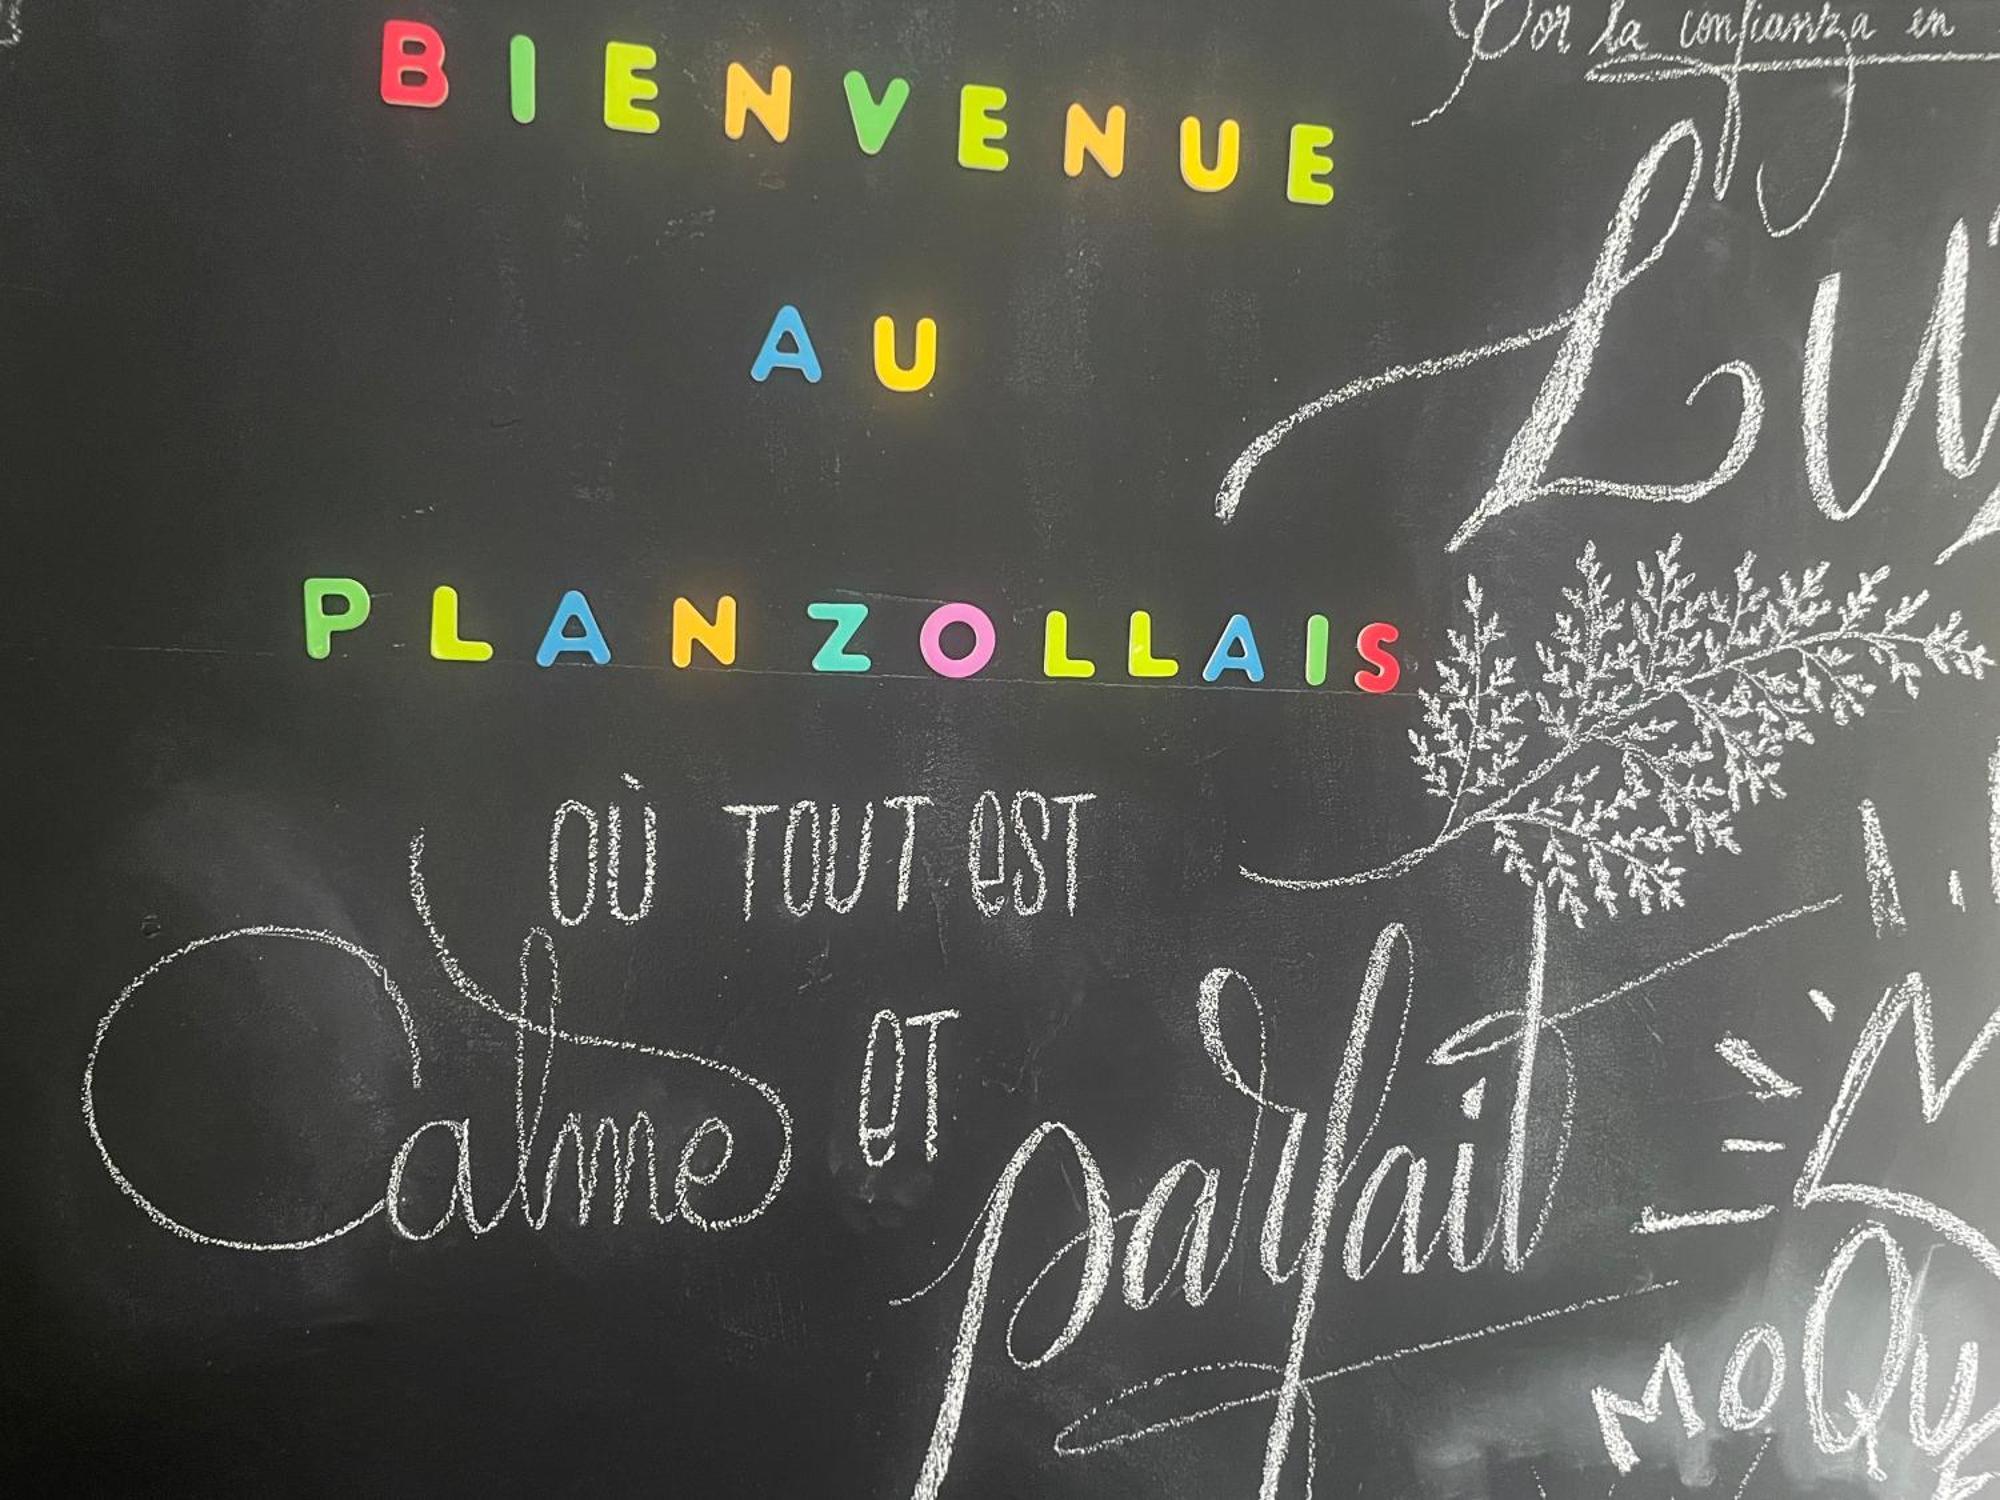 BIENVENUE
AU
PLANZOLLAIS
OÙ TOUT eST
Calme
eT
parfait
Por la confianza en